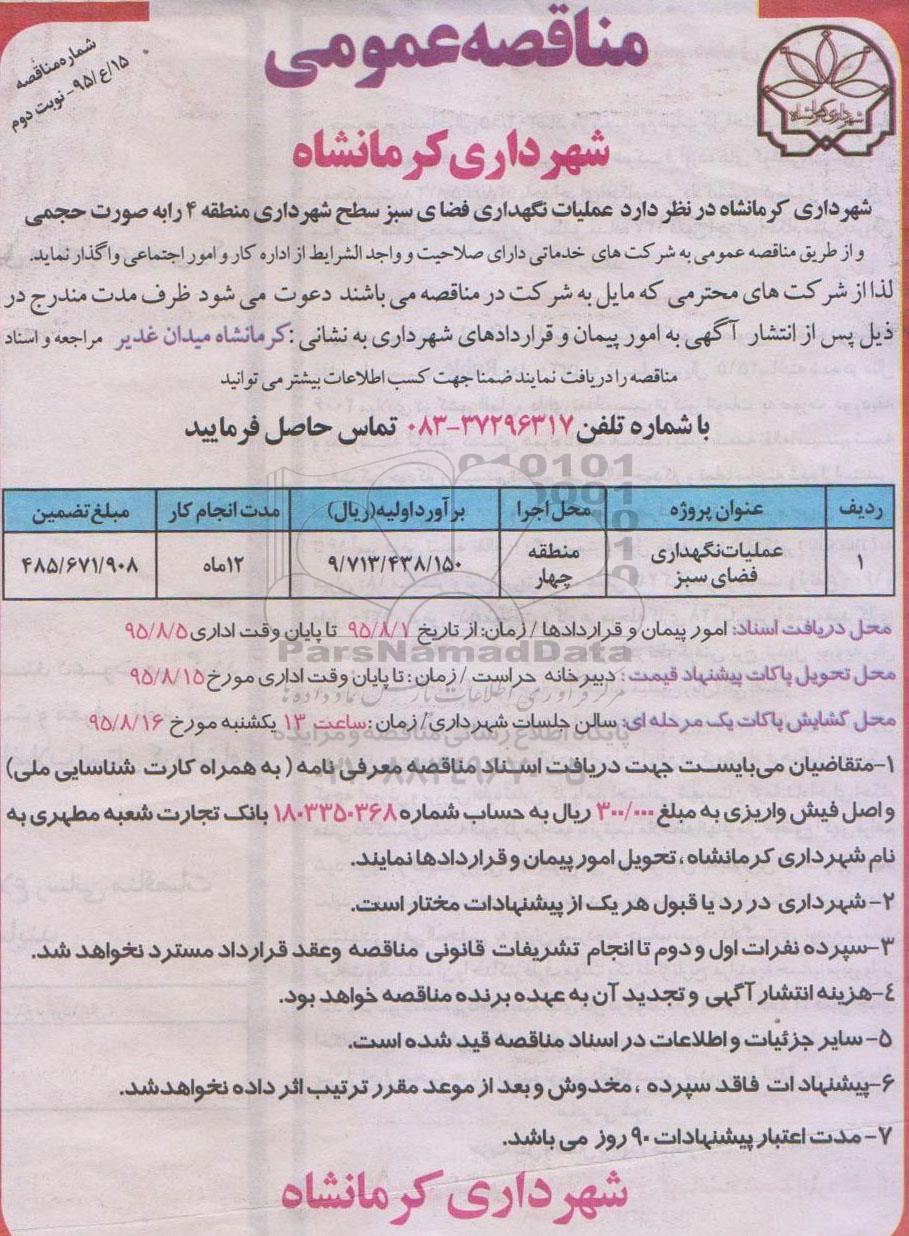 مناقصه عمومی
شماره مناقصه
۹۵/ع/۱۵ - نوبت دوم
شهرداری کرمانشاه
شهرداری کرمانشاه
شهرداری کرمانشاه در نظر دارد عملیات نگهداری فضای سبز سطح شهرداری منطقه ۴ را به صورت حجمی
و از طریق مناقصه عمومی به شرکت های خدماتی دارای صلاحیت و واجد الشرایط از اداره کار و امور اجتماعی واگذار نماید.
لذا از شرکت های محترمی که مایل به شرکت در مناقصه می باشند دعوت می شود ظرف مدت مندرج در
ذیل پس از انتشار آگهی به امور پیمان و قراردادهای شهرداری به نشانی : کرمانشاه میدان غدیر مراجعه و اسناد
مناقصه را دریافت نمایند ضمنا جهت کسب اطلاعات بیشتر می توانید
با شماره تلفن ۳۷۲۹۶۳۱۷-۰۸۳ تماس حاصل فرمایید
ردیف عنوان پروژه محل اجرا برآورد اولیه(ریال) مدت انجام کار مبلغ تضمین
۱ عملیات نگهداری فضای سبز منطقه چهار ۹/۷۱۳/۴۳۸/۱۵۰ ۱۲ماه ۴۸۵/۶۷۱/۹۰۸
محل دریافت اسناد: امور پیمان و قراردادها / زمان: از تاریخ ۹۵/۸/۱ تا پایان وقت اداری ۹۵/۸/۵
ParsNamadData
محل تحویل پاکات پیشنهاد قیمت : دبیرخانه حراست / زمان : تا پایان وقت اداری مورخ ۹۵/۸/۱۵
محل گشایش پاکات یک مرحله ای: سالن جلسات شهرداری/ زمان :ساعت ۱۳ یکشنبه مورخ ۹۵/۸/۱۶
۱-متقاضیان می‌بایست جهت دریافت اسناد مناقصه معرفی نامه ( به همراه کارت شناسایی ملی)
و اصل فیش واریزی به مبلغ ۳۰۰/۰۰۰ ریال به حساب شماره ۱۸۰۳۳۵۰۳۶۸ بانک تجارت شعبه مطهری به
نام شهرداری کرمانشاه ، تحویل امور پیمان و قراردادها نمایند.
۲- شهرداری در رد یا قبول هر یک از پیشنهادات مختار است.
۳-سپرده نفرات اول و دوم تا انجام تشریفات قانونی مناقصه وعقد قرارداد مسترد نخواهد شد.
۴-هزینه انتشار آگهی و تجدید آن به عهده برنده مناقصه خواهد بود.
۵- سایر جزئیات و اطلاعات در اسناد مناقصه قید شده است.
۶-پیشنهادات فاقد سپرده ، مخدوش و بعد از موعد مقرر ترتیب اثر داده نخواهدشد.
۷- مدت اعتبار پیشنهادات ۹۰ روز می باشد.
شهرداری کرمانشاه